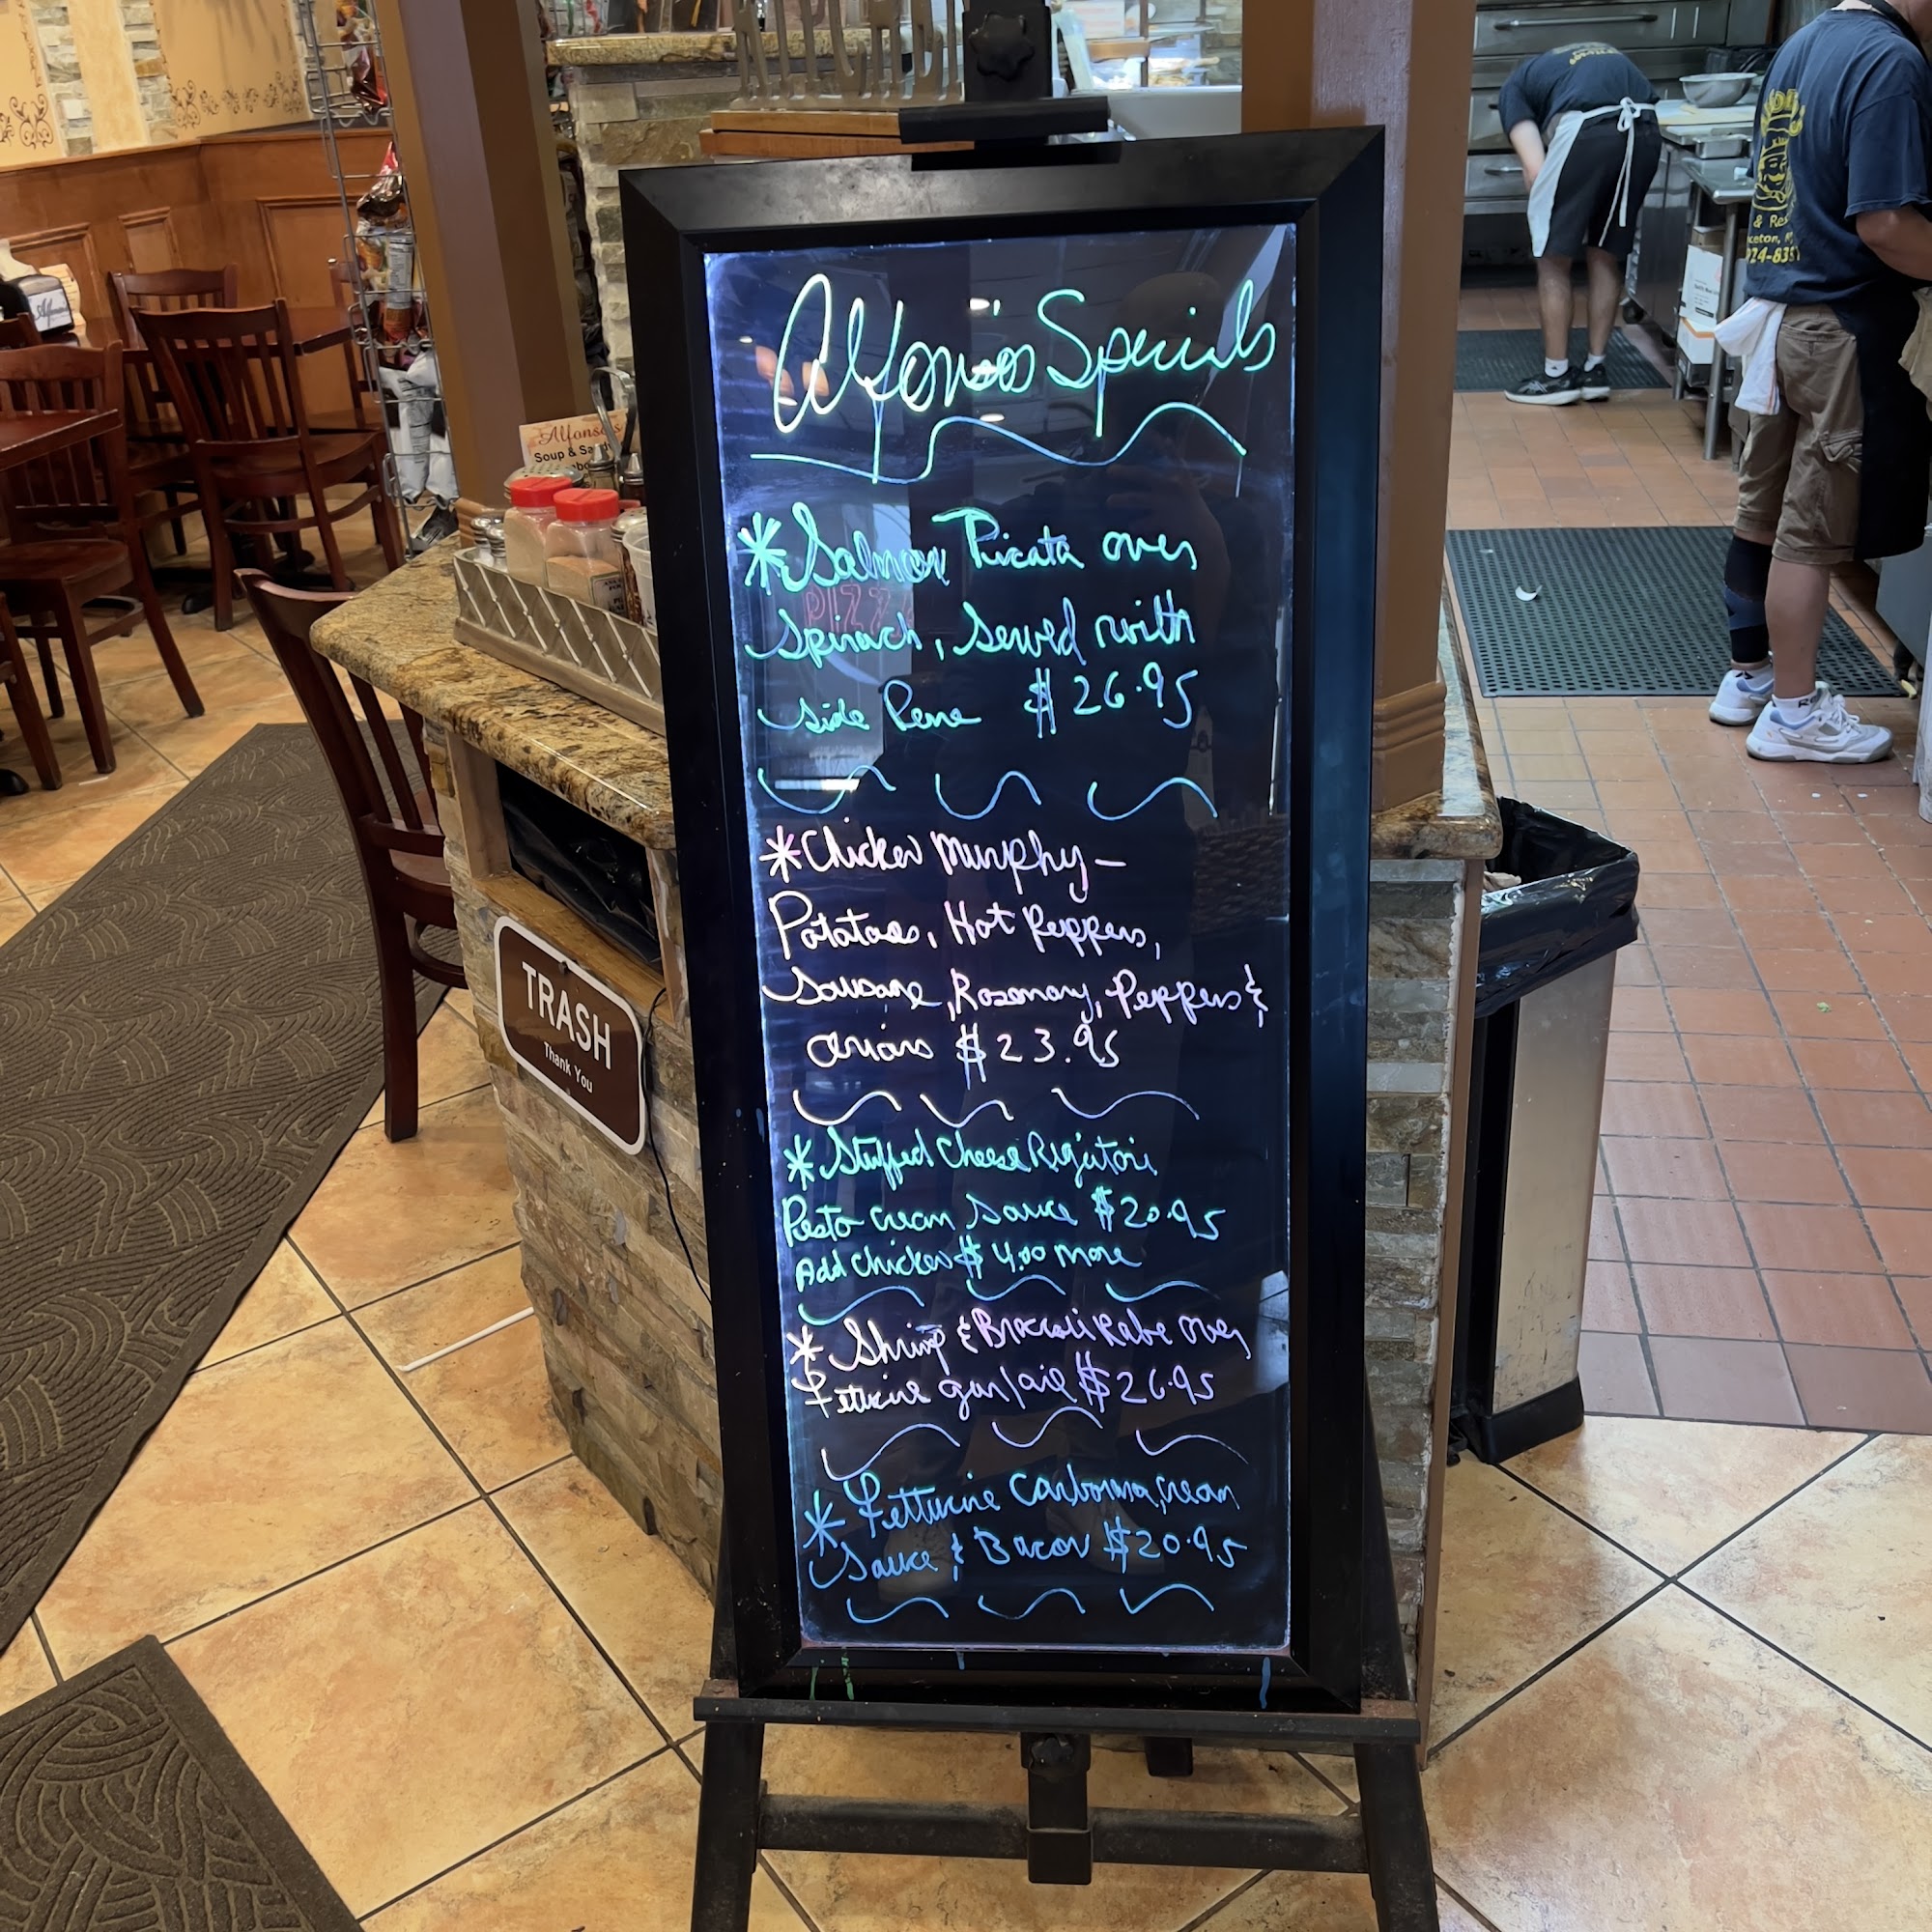 Alfonso's Specials
*Salmon Picata over
Spinach, Served with
side Pene $26.95
*Chicken Murphy-
Potatoes, Hot Peppers,
Sausage, Rosemary, Peppers &
onions $23.95
*Stuffed Cheese Rigatoni
Pesto cream Sauce $20.95
Add chicken $4.00 more
* Shrimp & Broccoli Rabe over
Fettucine gar/oil $26.95
* Fettucine Carbonara, cream
Sauce & Bacon $20.95
TRASH
Thank You
Alfonso's
Soup &
PIZZ
& Res
ceton,
924-838